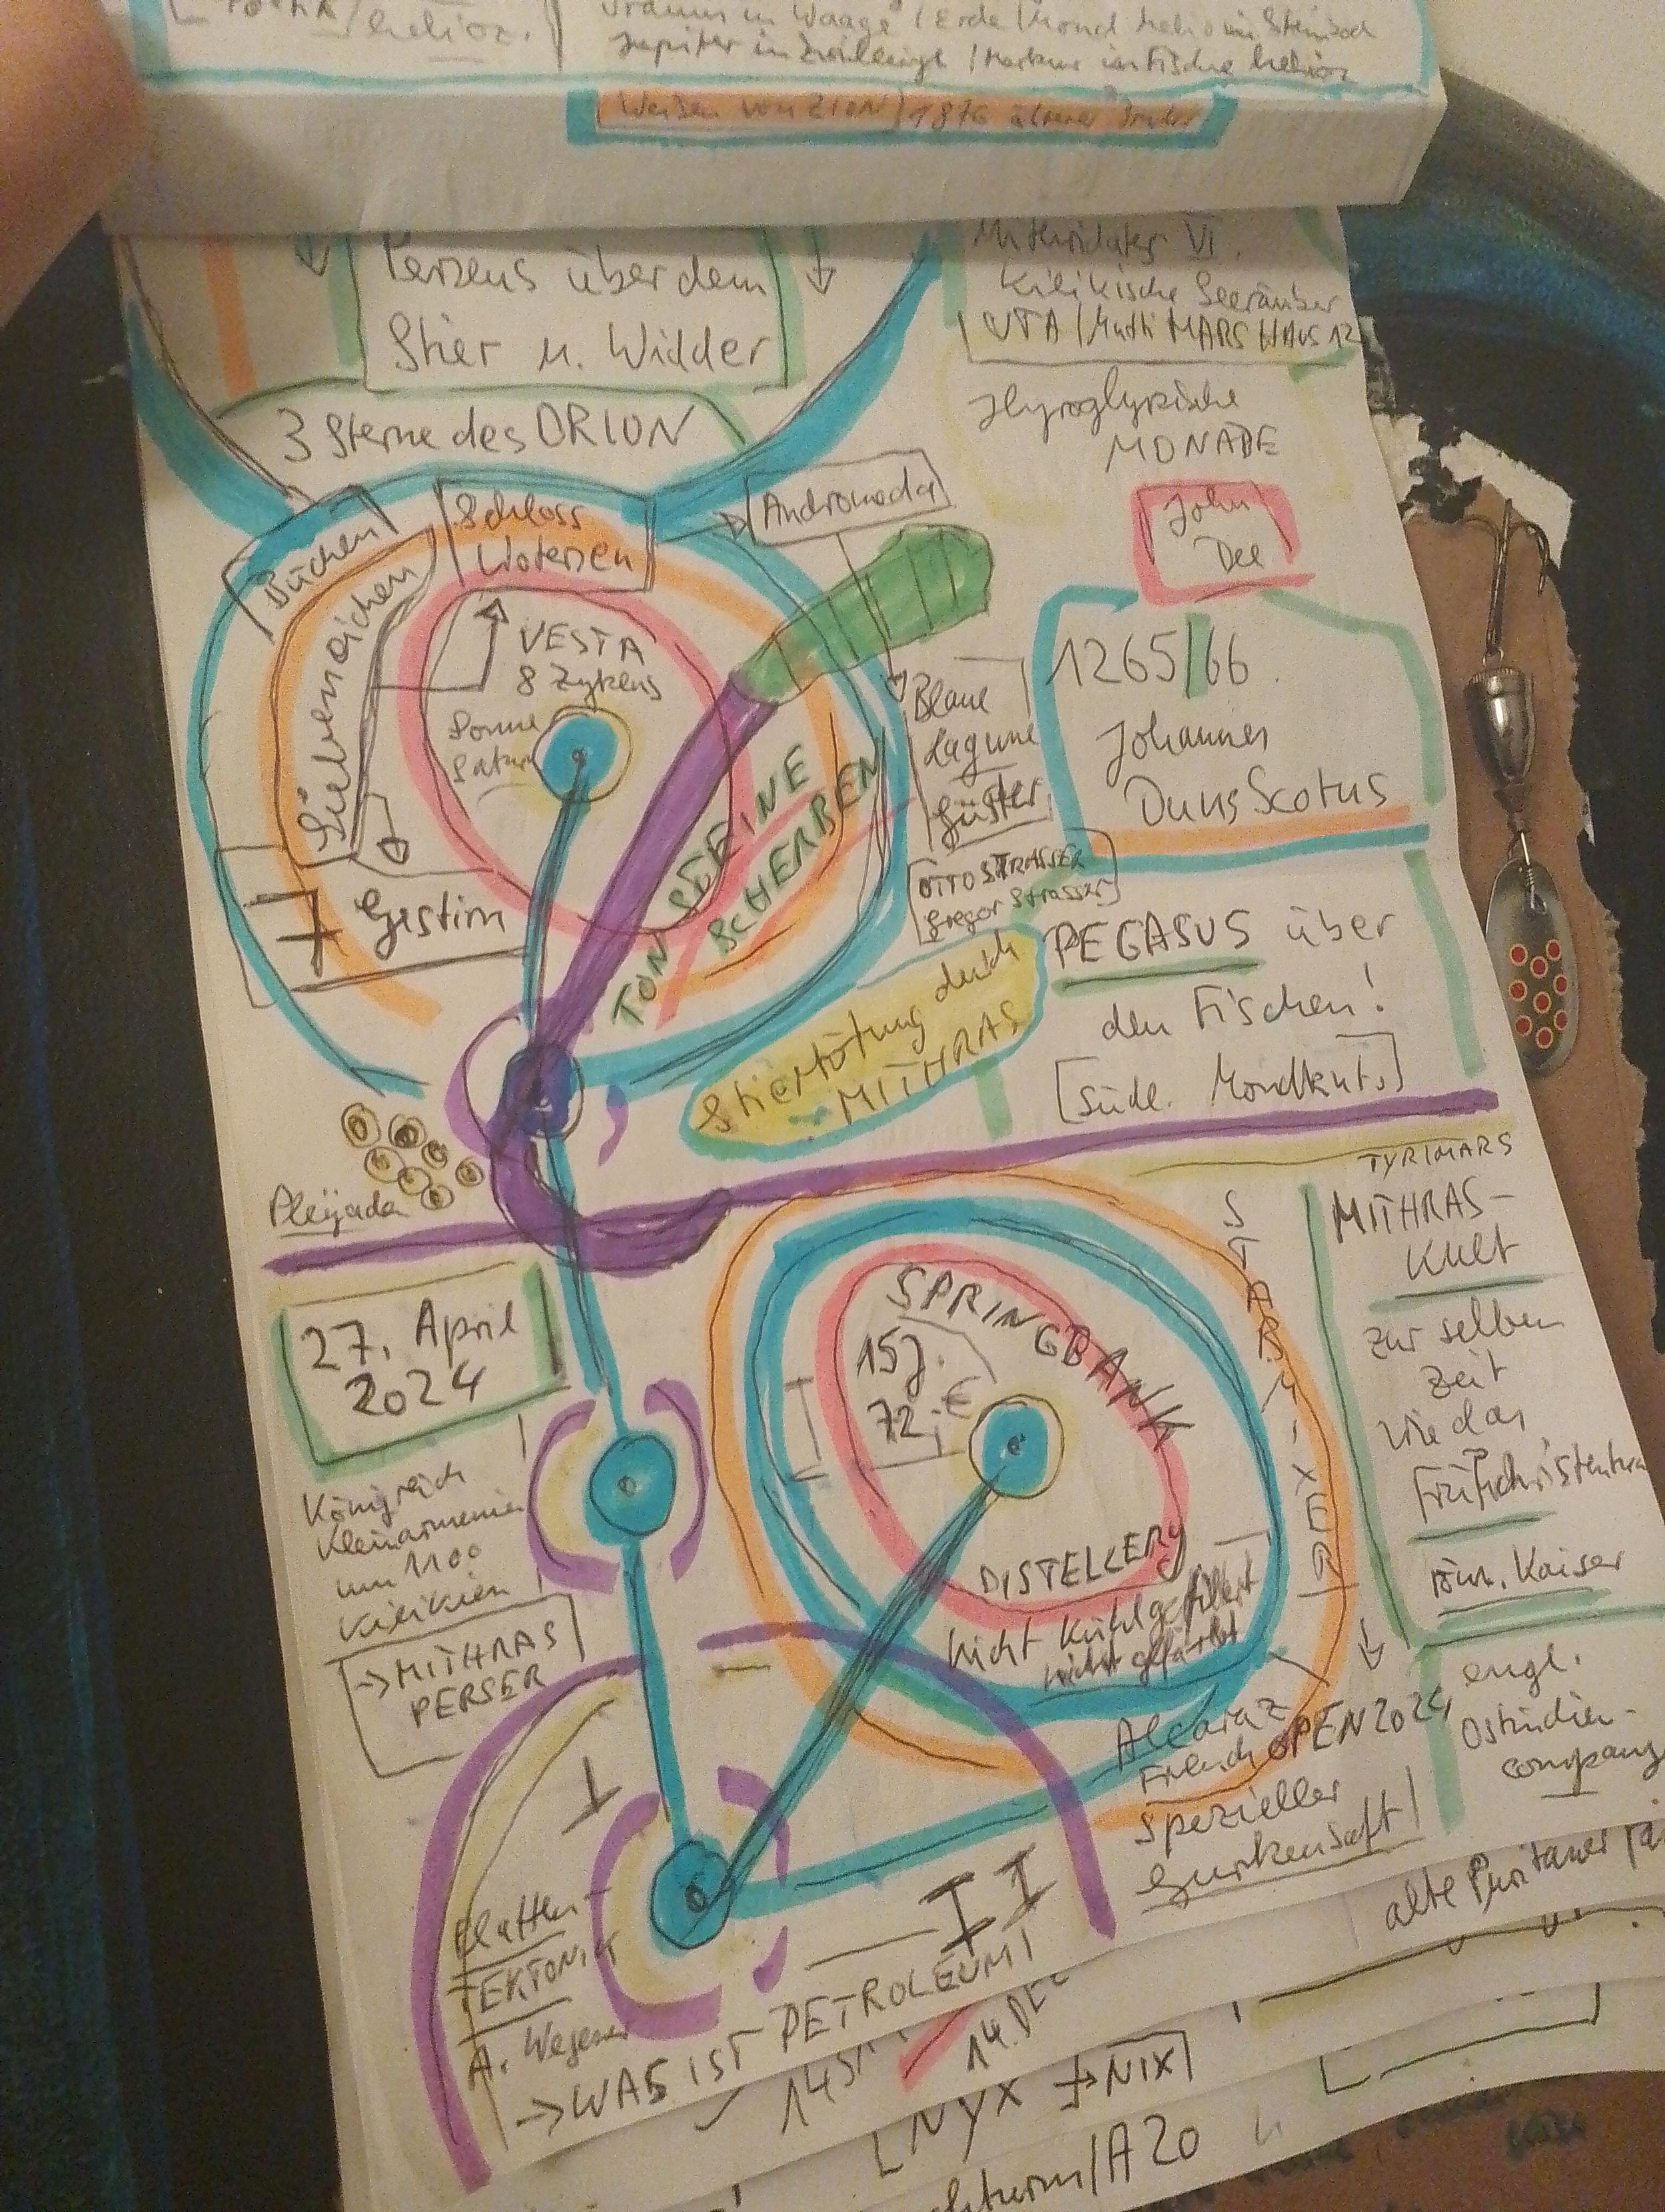 helioz.
in Waage / Erde / Mond helio im Steinbock
Jupiter in Zwillinge / Merkur in Fische helioz
Weisen von ZION 1876
Perseus über dem
Stier u. Widder
3 Sterne des ORION
Mithridates VI.
Kilikische Seeräuber
UTA / Mutti MARS HAUS 12
Hyroglyphische
MONADE
John
Dee
Andromeda
Büchen
Schloss
Wotersen
Siebeneichen
VESTA
8 Zyklus
Sonne
Saturn
Gestirn
TON STEINE
SCHERBEN
Blaue
Lagune
Güster
OTTO STRASSER
Gregor Strasser
1265/66
Johannes
Duns Scotus
PEGASUS über
den Fischen!
[Südl. Mondknt.]
Stiertötung durch
MITHRAS
Pleijada
27. April
2024
Königreich
Kleinarmenien
um 1100
Kilikien
→ MITHRAS
PERSER
SPRINGBANK
15J.
72.€
DISTELLERY
Nicht Kühlgefiltert
nicht gefärbt
TYRIMARS
MITHRAS-
KULT
zur selben
Zeit
wie das
Frühchristentum
röm. Kaiser
engl.
Ostindien-
company
Alcaraz
French OPEN 2024
spezieller
Gurkensaft
Platten-
TEKTONIK
A. Wegener
→ WAS IST PETROLEUM?
alte Puritaner
14. DEZ
NYX → NIX
/A20